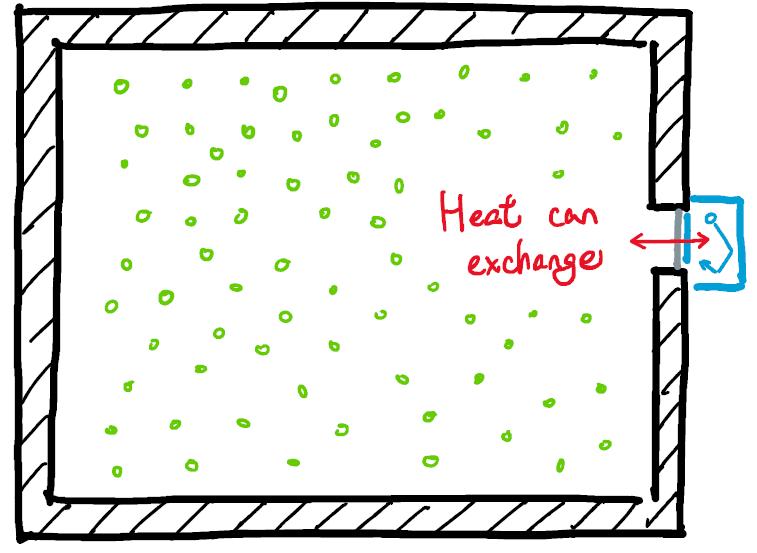 Heat can
exchange